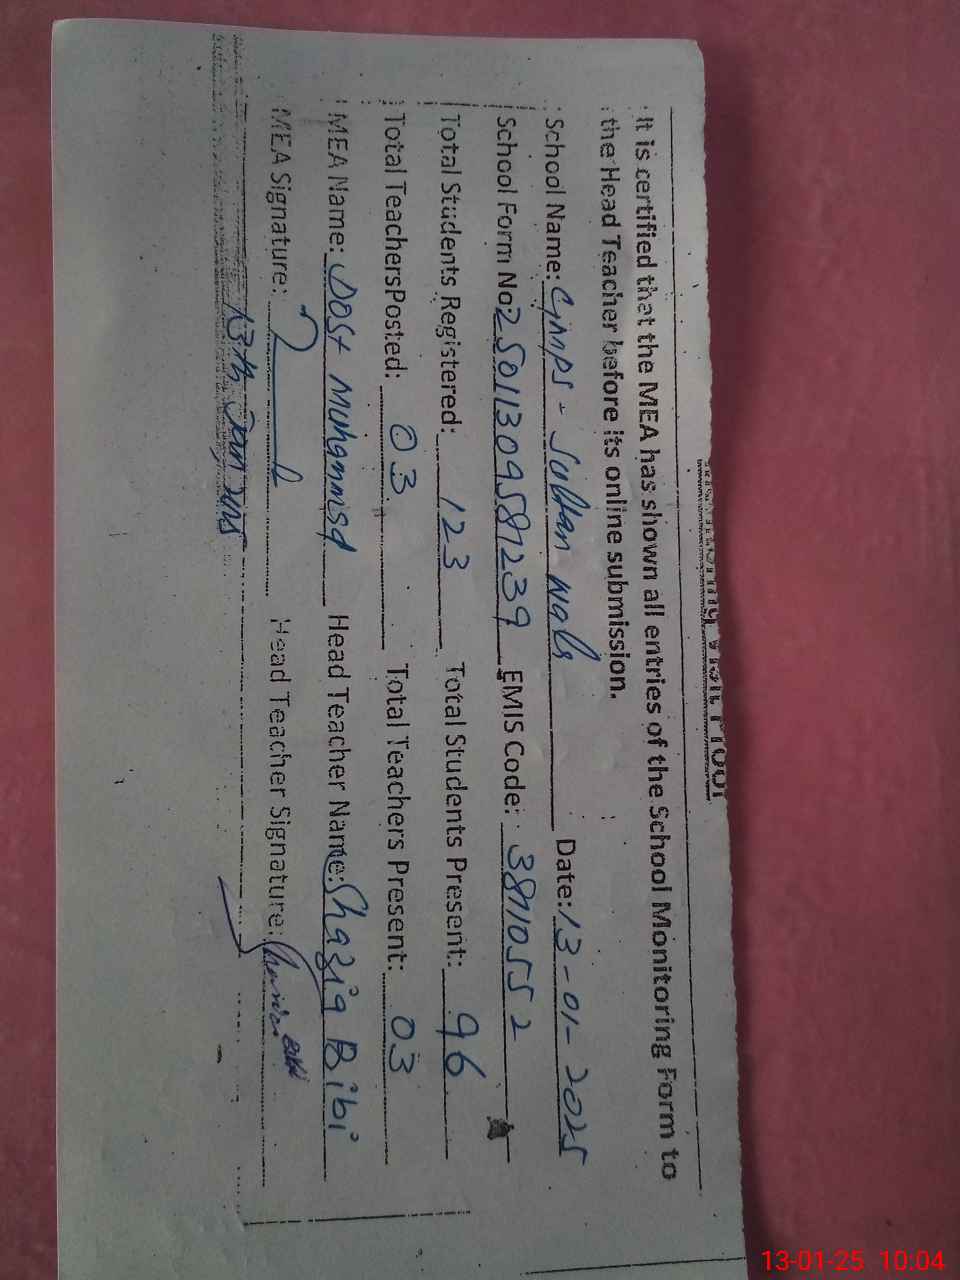 Visit Proof
It is certified that the MEA has shown all entries of the School Monitoring Form to
the Head Teacher before its online submission.
School Name: GMPS - Sultan wala Date: 13-01-2025
School Form No: 25011309587239 EMIS Code: 38110552
Total Students Registered: 123 Total Students Present: 96
Total Teachers Posted: 03 Total Teachers Present: 03
MEA Name: Dost Muhammad Head Teacher Name: Shazia Bibi
MEA Signature: Head Teacher Signature:
13th Jan 2025
13-01-25 10:04